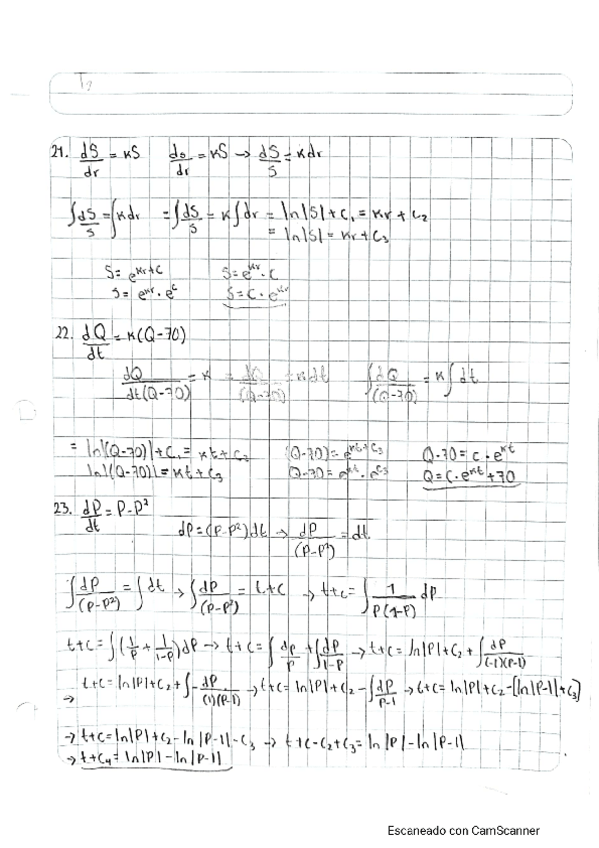 21. dS/dr = κS   ds/dr = κS → dS/S = κdr
∫dS/S = ∫κdr = ∫dS/S = κ∫dr = ln|S| + c₁ = κr + c₂
= ln|S| = κr + c₃
S = e^(κr+c)   S = e^(κr) · c
S = e^(κr) · e^c   S = c · e^(κr)
22. dQ/dt = κ(Q-70)
dQ/dt(Q-70) = κ = dQ/(Q-70) = κdt   ∫dQ/(Q-70) = κ∫dt
= ln|(Q-70)| + c₁ = κt + c₂   (Q-70) = e^(κt+c₃)   Q-70 = c · e^(κt)
ln|(Q-70)| = κt + c₃   Q-70 = e^(κt) · e^(c₃)   Q = C · e^(κt) + 70
23. dP/dt = P-P²
dP = (P-P²)dt → dP/(P-P²) = dt
∫dP/(P-P²) = ∫dt → ∫dP/(P-P²) = t+c → t+c = ∫1/P(1-P) dP
t+c = ∫(1/P + 1/1-P)dP → t+c = ∫dP/P + ∫dP/1-P → t+c = ln|P| + c₂ + ∫dP/(-1)(P-1)
→ t+c = ln|P| + c₂ + ∫-dP/(1)(P-1) → t+c = ln|P| + c₂ - ∫dP/P-1 → t+c = ln|P| + c₂ - [ln|P-1| + c₃]
→ t+c = ln|P| + c₂ - ln|P-1| - c₃ → t+c-c₂+c₃ = ln|P| - ln|P-1|
→ t+c₄ = ln|P| - ln|P-1|
Escaneado con CamScanner